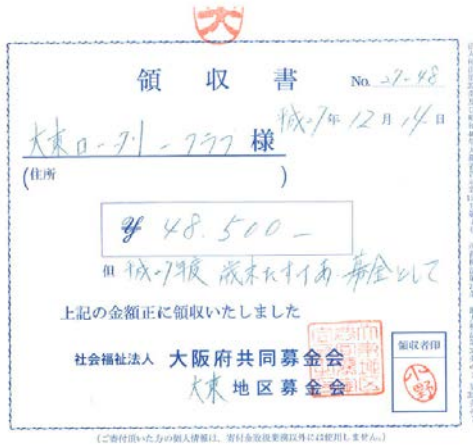 大
領 収 書 No. 27-48
平成27年 12月 14日
大東ロータリークラブ 様
(住所 )
¥ 48.500-
但 平成27年度 歳末たすけあい募金として
上記の金額正に領収いたしました
社会福祉法人 大阪府共同募金会
大東 地区募金会
領収者印
小野
(ご寄付頂いた方の個人情報は、寄付金収受業務以外には使用しません。)